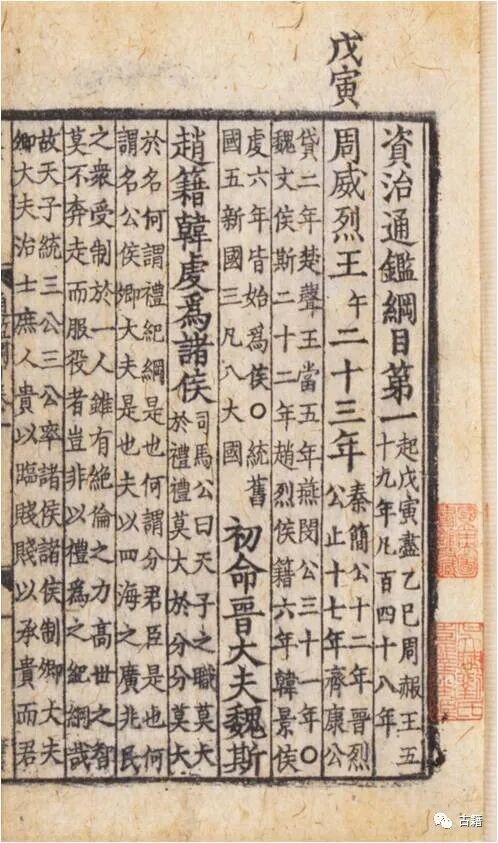 戊寅
資治通鑑綱目第一
起戊寅盡乙巳周赧王五
十九年凡百四十八年
周威烈王午二十三年
秦簡公十二年晉烈
公止十七年齊康公
貸二年楚聲王當五年燕閔公三十一年〇
魏文侯斯二十二年趙烈侯籍六年韓景侯
虔六年皆始爲侯〇統舊
國五新國三凡八大國
初命晉大夫魏斯
趙籍韓虔爲諸侯
司馬公曰天子之職莫大
於禮禮莫大於分分莫大
於名何謂禮紀綱是也何謂分君臣是也何
謂名公侯卿大夫是也夫以四海之廣兆民
之衆受制於一人雖有絕倫之力高世之智
莫不奔走而服役者豈非以禮爲之紀綱哉
故天子統三公三公率諸侯諸侯制卿大夫
卿大夫治士庶人貴以臨賤賤以承貴而君
古籍